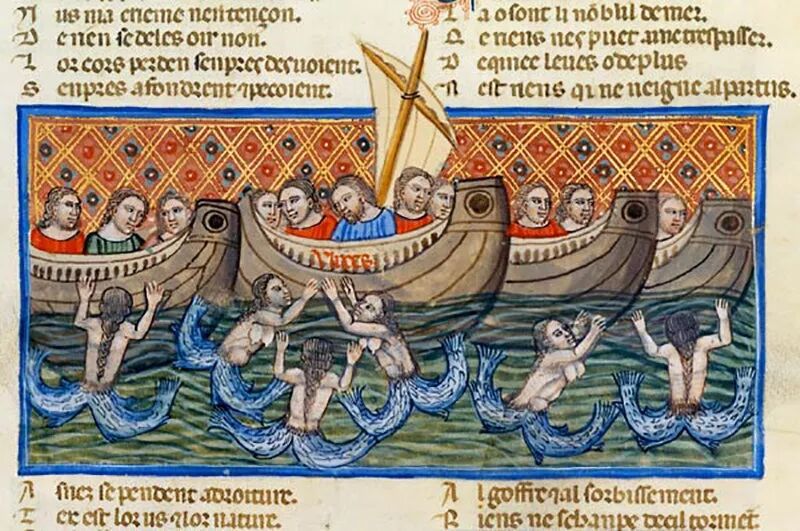 N us ma crieme nen tençon.
D e nen se deles oir non.
L or cors perden senpres desuoient.
S enpres afondrent ⁊ pecoient.
L a o sont li nōblil de mer.
Q e riens nes puet trespasser.
D leues o de plus
N est riens qi ne ueigne al partus.
Vlixes
A se pendent adroiture.
T ex est lor us ⁊ lor nature.
A l goffre ⁊ al sorbissement.
R iens ne de cil torment.